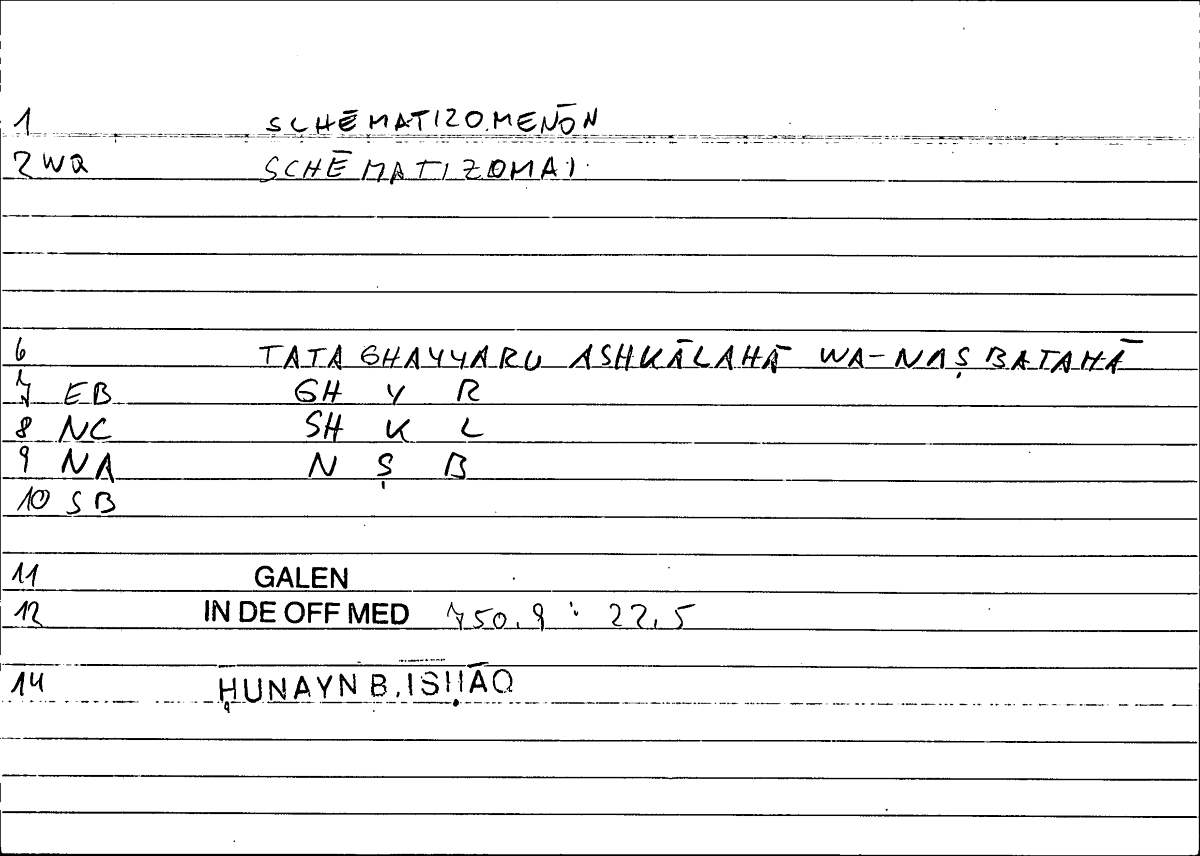 1 SCHĒMATIZOMENŌN
2 WQ SCHĒMATIZOMAI
6 TATAGHAYYARU ASHKĀLAHĀ WA-NAṢBATAHĀ
7 EB GH Y R
8 NC SH K L
9 NA N Ṣ B
10 SB
11 GALEN
12 IN DE OFF MED 750,9 : 22,5
14 ḤUNAYN B. ISḤĀQ